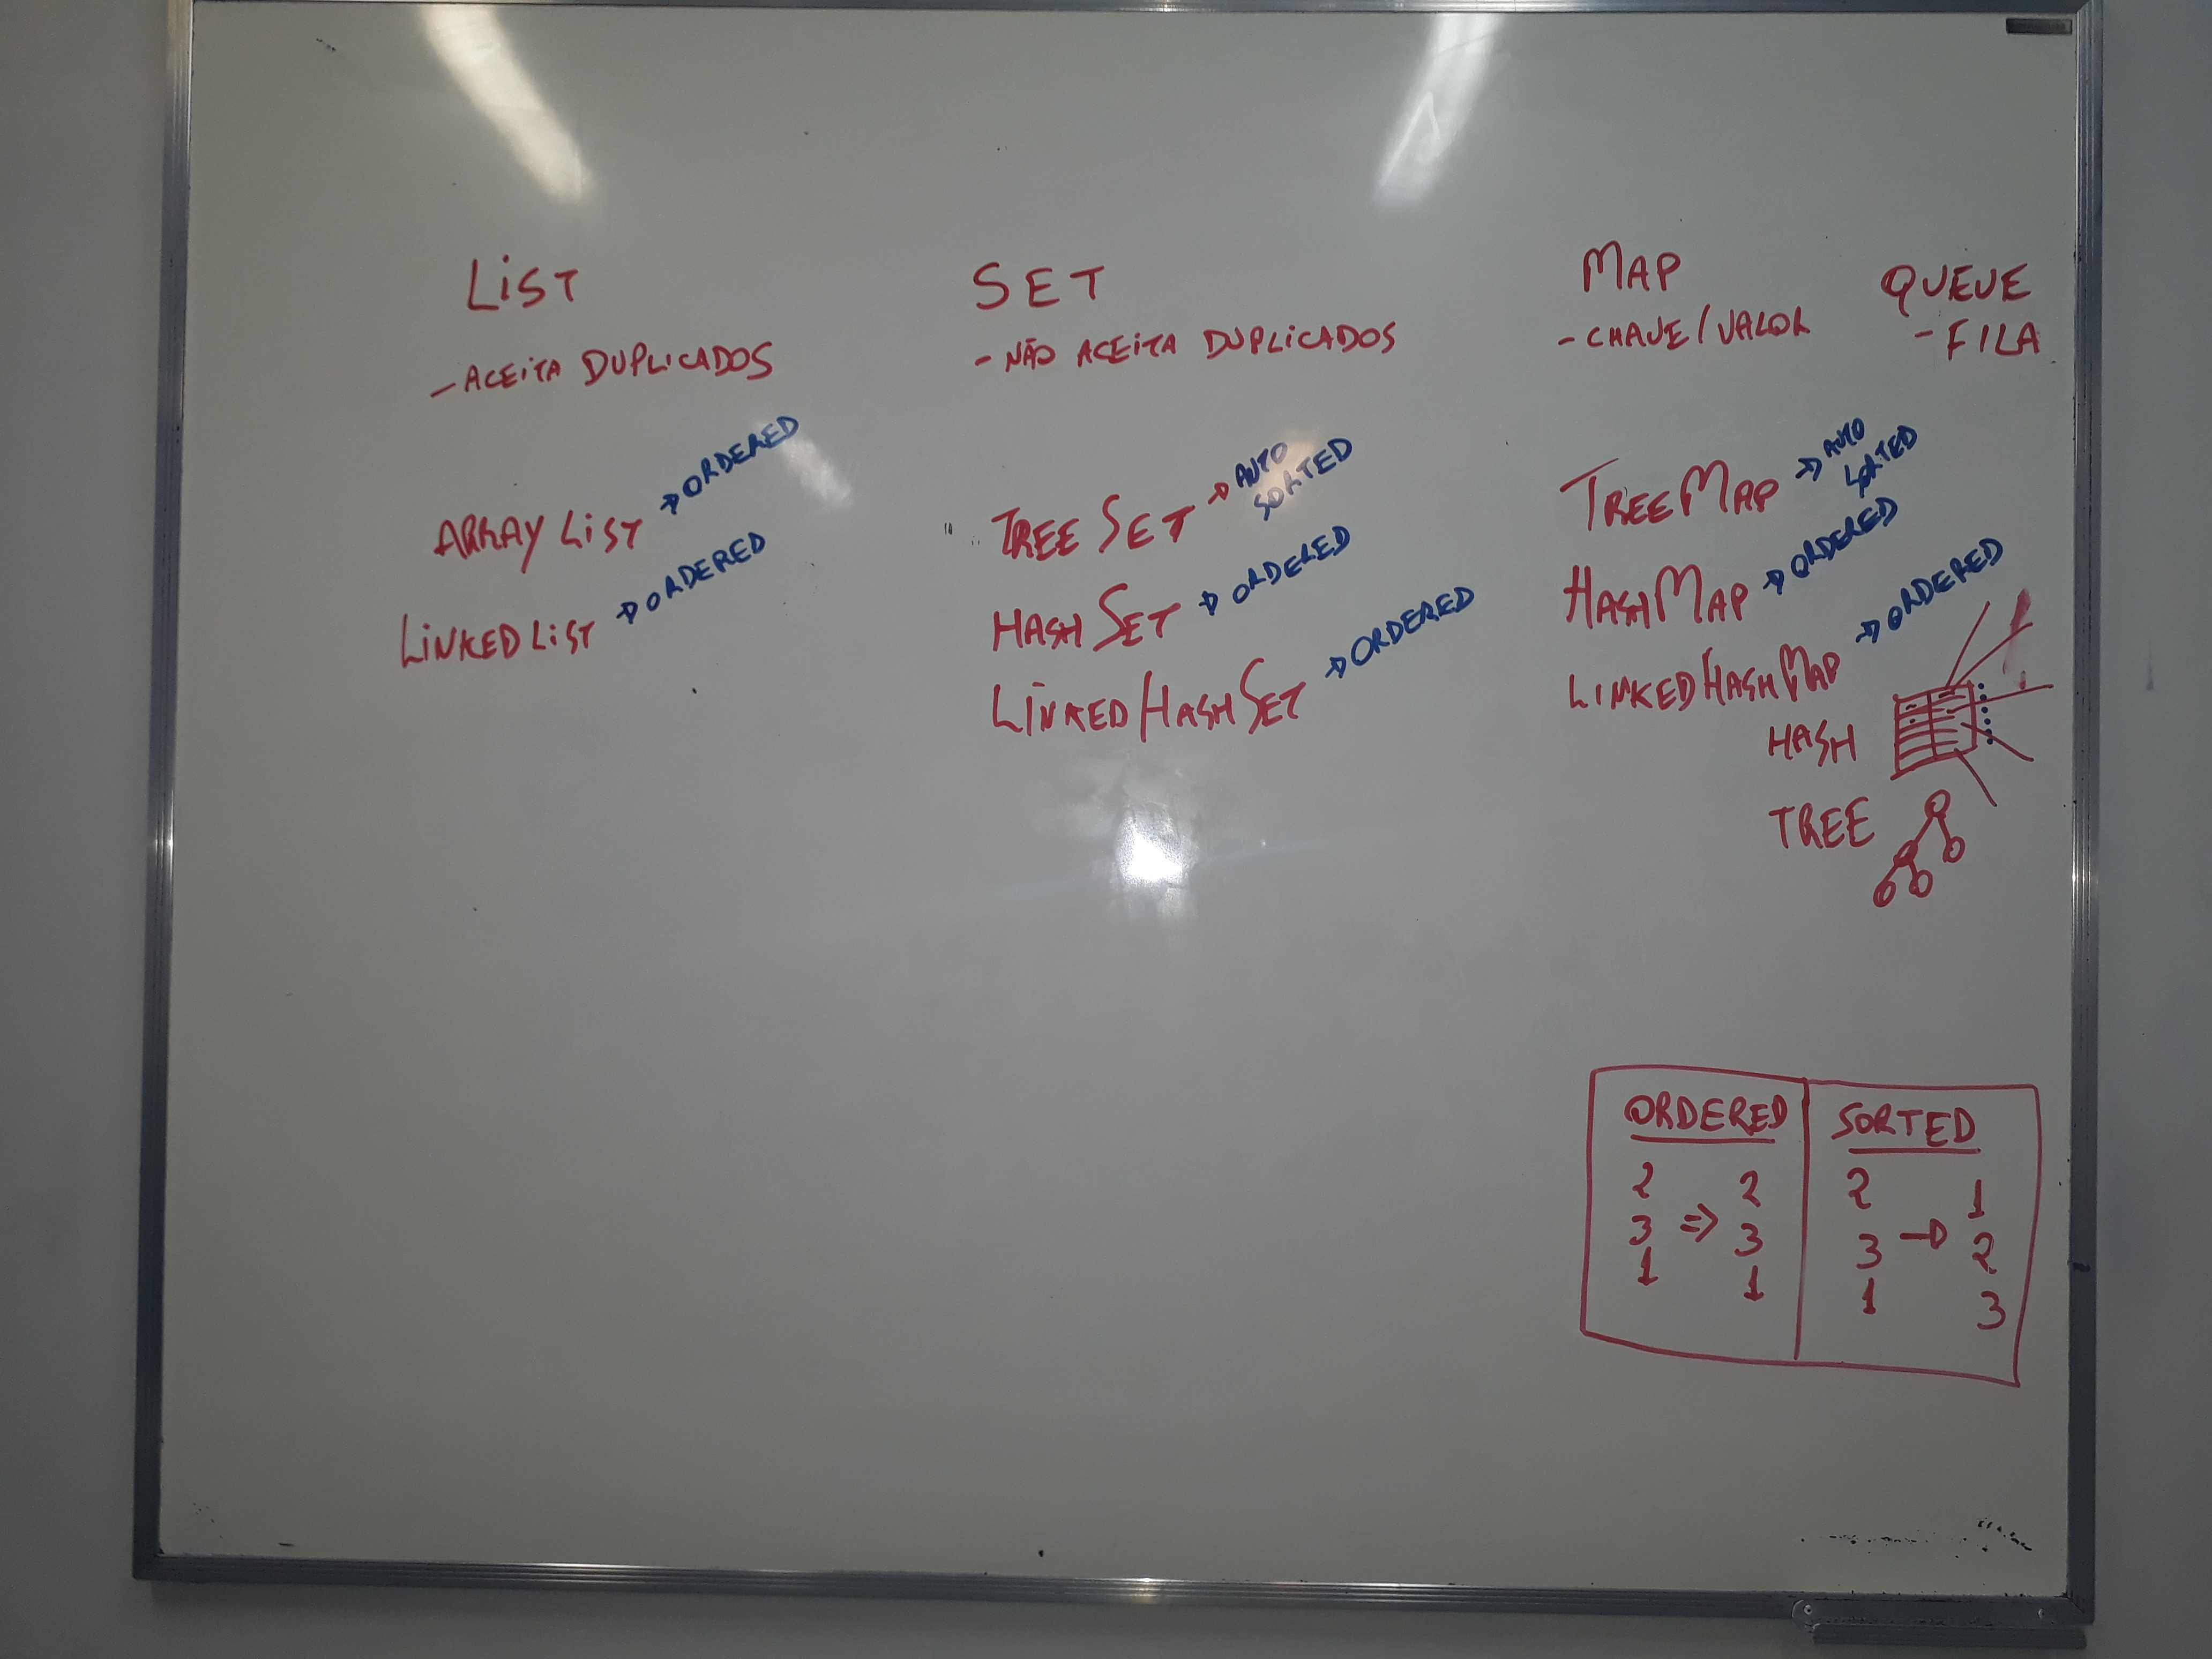 LIST
- ACEITA DUPLICADOS
ARRAY LIST → ORDERED
LINKED LIST → ORDERED
SET
- NÃO ACEITA DUPLICADOS
TREE SET → AUTO SORTED
HASH SET → ORDERED
LINKED HASH SET → ORDERED
MAP
- CHAVE / VALOR
TREE MAP → AUTO SORTED
HASH MAP → ORDERED
LINKED HASH MAP → ORDERED
HASH
TREE
QUEUE
- FILA
ORDERED
2 2
3 => 3
1 1
SORTED
2 1
3 → 2
1 3